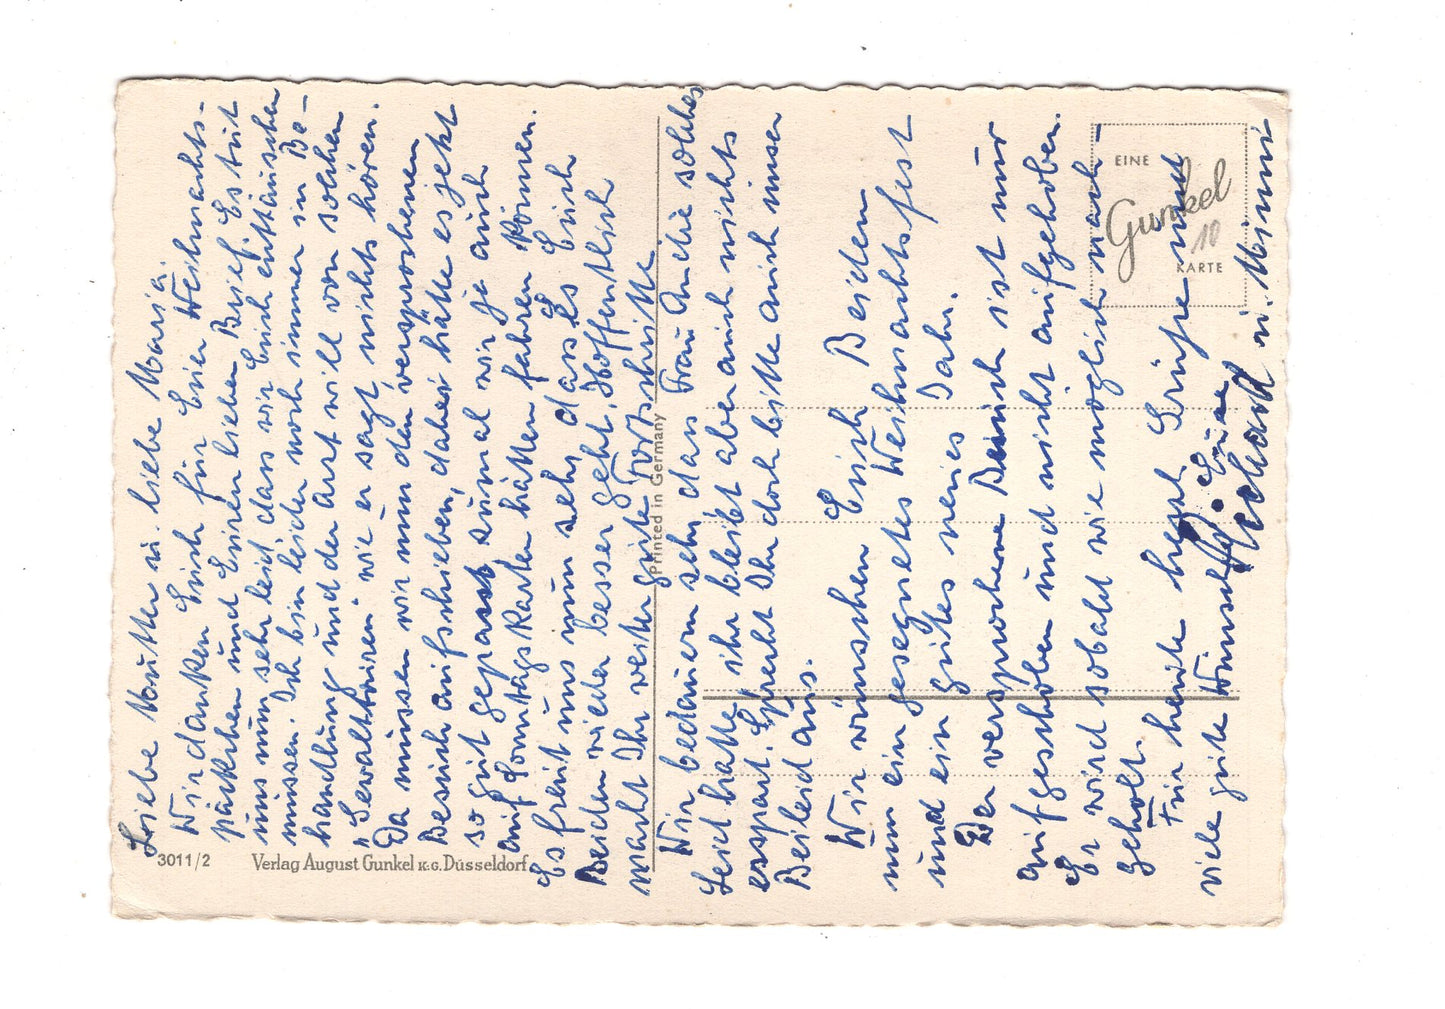 Liebe Mutter u. liebe Maria.
Wir danken Euch für Euer Weihnachts-
päckchen und Euren lieben Brief. Es tut
uns nun sehr leid, dass wir Euch enttäuschen
müssen. Ich bin leider noch immer in Be-
handlung und der Arzt will von solchen
"Gewalttüren" wie er sagt, nichts hören.
Da müssen wir nun den versprochenen
Besuch aufschieben, dabei hätte es jetzt
so gut gepasst zumal wir ja auch
auf Sonntagskarten hätten fahren können.
Es freut uns nun sehr, dass Es Euch
Beiden wieder besser geht, Hoffentlich
macht Ihr weiter gute Fortschritte
Wir bedauern sehr, dass Frau solches
Leid hatte, ihr bleibt aber auch nichts
erspart. Sprecht Ihr doch bitte auch unser
Beileid aus.
Wir wünschen Euch Beiden
nun ein gesegnetes Weihnachtsfest
und ein gutes neues Jahr.
Der versprochene Besuch ist nur
aufgeschoben und nicht aufgehoben.
Er wird sobald wie möglich nach-
geholt.
Für heute herzl. Grüsse und
viele gute Wünsche v. Euren
Gerhard u. Mimi
3011/2
Verlag August Gunkel K.G. Düsseldorf
Printed in Germany
EINE
Gunkel
KARTE
10